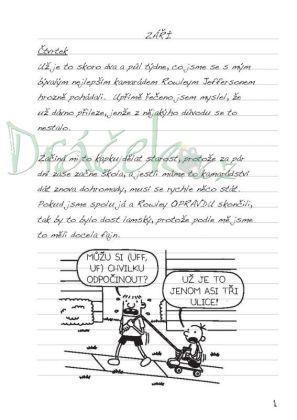 ZÁŘÍ
Čtvrtek
Už je to skoro dva a půl týdne, co jsme se s mým
bývalým nejlepším kamarádem Rowleym Jeffersonem
hrozně pohádali. Upřímě řečeno jsem myslel, že
už dávno přileze, jenže z nějakýho důvodu se to
nestalo.
Začíná mi to kapku dělat starost, protože za pár
dní zase začne škola, a jestli máme to kamarádství
dát znova dohromady, musí se rychle něco stát.
Pokud jsme spolu já a Rowley OPRAVDU skončili,
tak by to bylo dost lamský, protože podle mě jsme
to měli docela fajn.
MŮŽU SI (UFF,
UF) CHVILKU
ODPOČINOUT?
UŽ JE TO
JENOM ASI TŘI
ULICE!
1
Dráček.cz